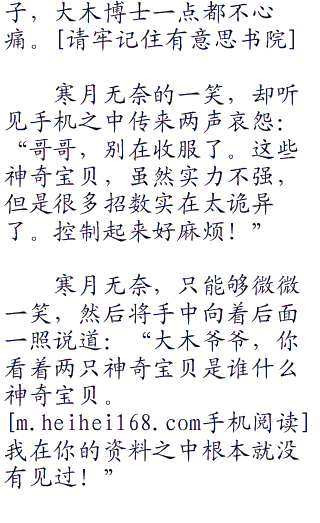 子，大木博士一点都不心
痛。[请牢记住有意思书院]
寒月无奈的一笑，却听
见手机之中传来两声哀怨：
“哥哥，别在收服了。这些
神奇宝贝，虽然实力不强，
但是很多招数实在太诡异
了。控制起来好麻烦！”
寒月无奈，只能够微微
一笑，然后将手中向着后面
一照说道：“大木爷爷，你
看着两只神奇宝贝是谁什么
神奇宝贝。
[m.heihei168.com手机阅读]
我在你的资料之中根本就没
有见过！”